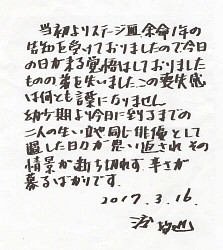 当初よりステージⅢ、余命1年の
告知を受けておりましたので今日
の日が来る覚悟はしておりました
ものの弟を失いましたこの喪失感
は何とも言葉になりません
幼少期より今日に到るまでの
二人の生い立ち、同じ俳優として
過した日々が思い返され その
情景が断ち切れず 辛さが
募るばかりです。
2017.3.16.
渡